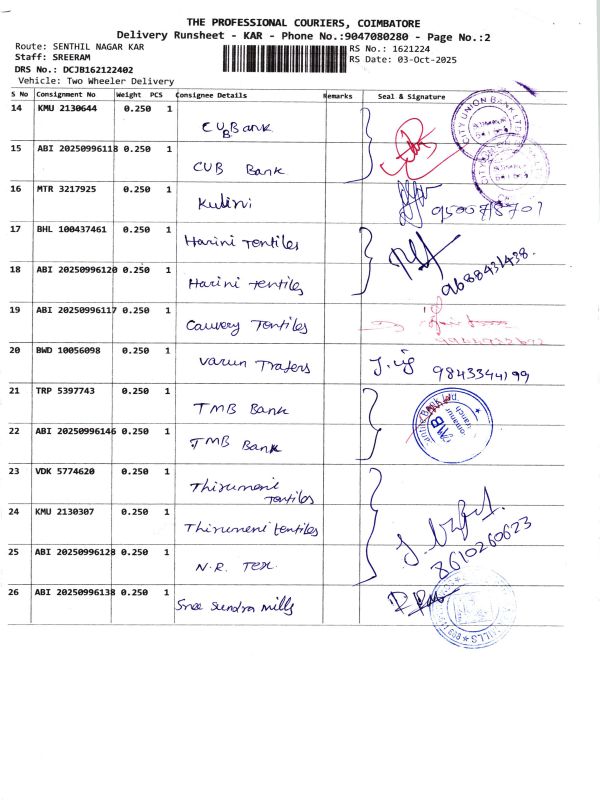 THE PROFESSIONAL COURIERS, COIMBATORE
Delivery Runsheet - KAR - Phone No.:9047080280 - Page No.:2
Route: SENTHIL NAGAR KAR
RS No.: 1621224
Staff: SREERAM
RS Date: 03-Oct-2025
DRS No.: DCJB162122402
Vehicle: Two Wheeler Delivery
S No Consignment No Weight PCS Consignee Details Remarks Seal & Signature
14 KMU 2130644 0.250 1 CUB Bank
15 ABI 20250996118 0.250 1 CUB Bank
CITY UNION BANK LTD
16 MTR 3217925 0.250 1 Kulini 950078707
17 BHL 100437461 0.250 1 Harini Textiles
18 ABI 20250996120 0.250 1 Harini textiles 9688431438.
19 ABI 20250996117 0.250 1 Cauvery Textiles
20 BWD 10056098 0.250 1 Varun Traders 9843344199
21 TRP 5397743 0.250 1 TMB Bank
22 ABI 20250996146 0.250 1 TMB Bank
TMB
23 VDK 5774620 0.250 1 Thirumeni
textiles
24 KMU 2130307 0.250 1 Thirumeni textiles
25 ABI 20250996128 0.250 1 N.R. Tex. 8610260623
26 ABI 20250996138 0.250 1 Sree Sundra mills